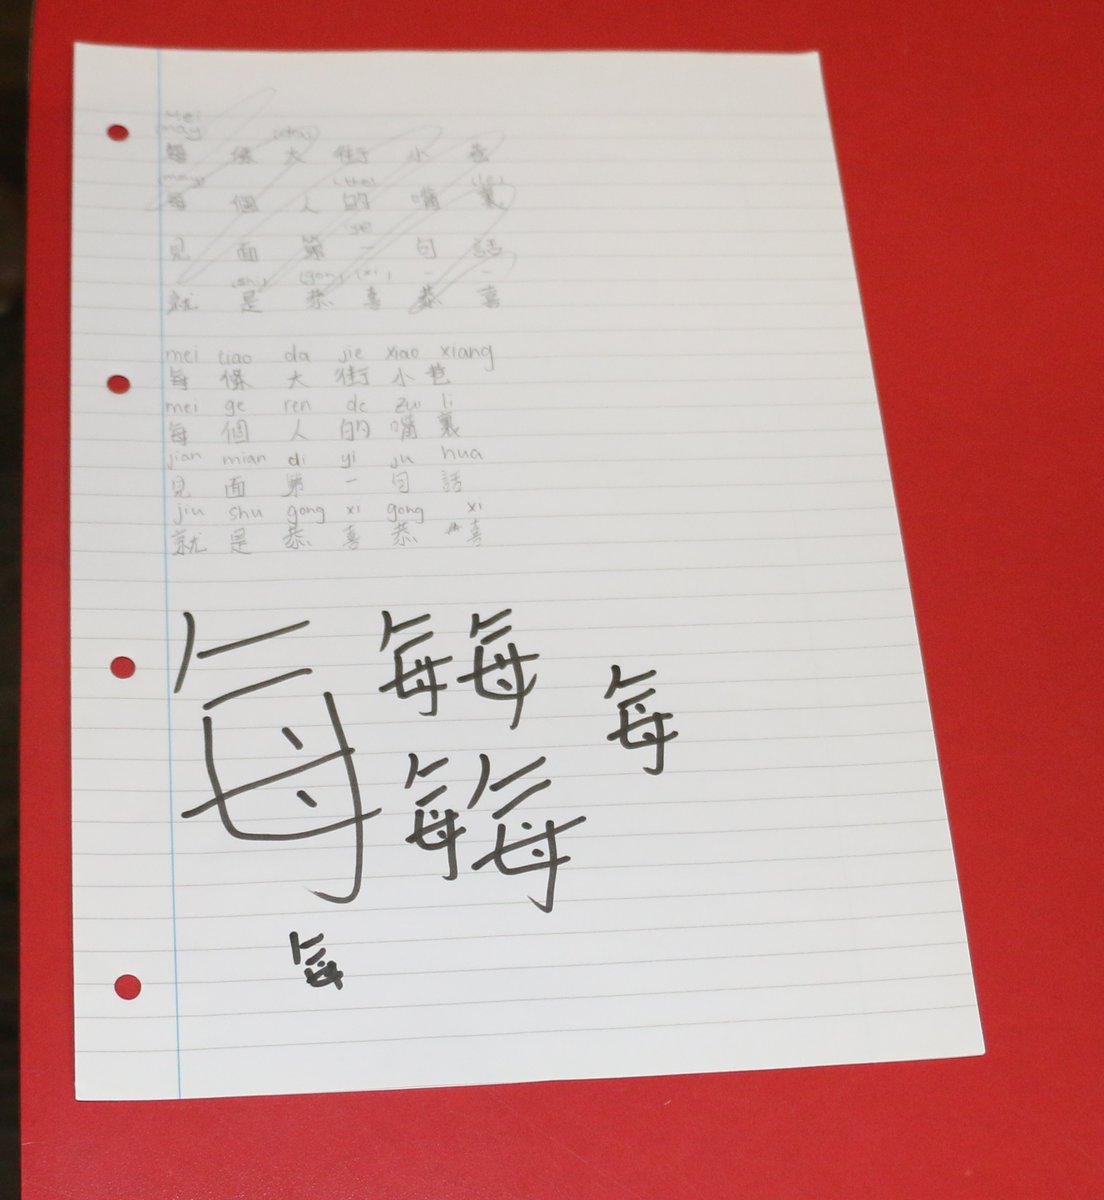 mei
may (shu)
每 條 大 街 小 巷
(may) (the) (lei)
每 個 人 的 嘴 裏
ye
見 面 第 一 句 話
(shi) (gon) (xi) - -
就 是 恭 喜 恭 喜
mei tiao da jie xiao xiang
每 條 大 街 小 巷
mei ge ren de zui li
每 個 人 的 嘴 裏
jian mian di yi ju hua
見 面 第 一 句 話
jiu shu gong xi gong xi
就 是 恭 喜 恭 喜
每 每 每 每
每 每
每